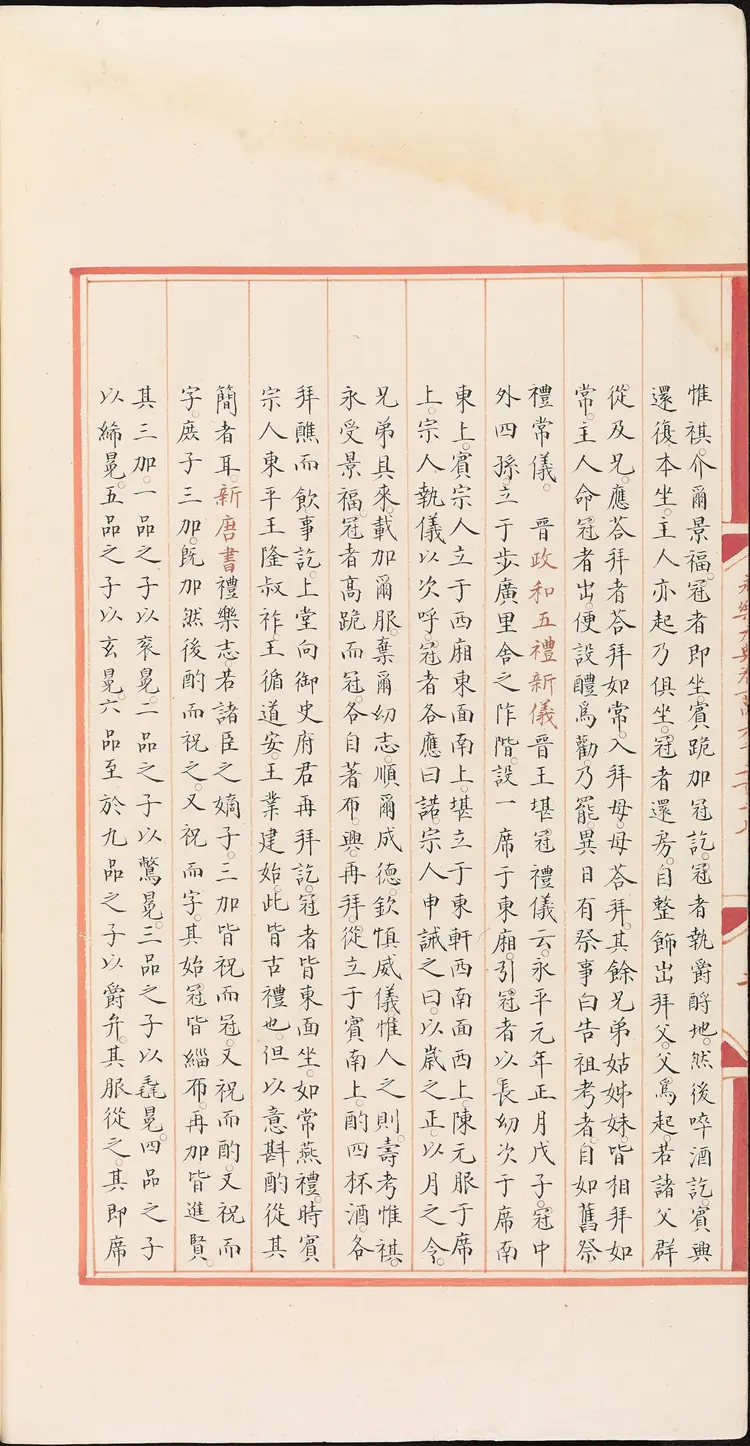 惟祺。介爾景福。冠者即坐。賓跪加冠訖。冠者執爵酹地。然後啐酒訖。賓興
還復本坐。主人亦起乃俱坐。冠者還房。自整飾出拜父。父爲起。若諸父群
從及兄。應荅拜者荅拜如常。入拜母。母荅拜。其餘兄弟姑姊妹。皆相拜如
常。主人命冠者出。便設醴爲勸。乃罷。異日有祭事白告祖考者。自如舊祭
禮常儀。 晉政和五禮新儀晉王堪冠禮儀云。永平元年正月戊子。冠中
外四孫。立于步廣里舍之阼階。設一席于東廂。引冠者以長幼次于席南
東上。賓宗人立于西廂東面南上。堪立于東軒西南面西上。陳元服于席
上。宗人執儀以次呼。冠者各應曰諾。宗人申誡之曰。以歲之正。以月之令。
兄弟具來。載加爾服。棄爾幼志。順爾成德。欽慎威儀惟人之則。壽考惟祺。
永受景福。冠者高跪而冠。各自著布。興。再拜。從立于賓南上。酌四杯酒。各
拜醮而飲事訖。上堂向御史府君再拜訖。冠者皆東面坐。如常燕禮。時賓
宗人東平王隆叔祚。王循道安。王業建始。此皆古禮也。但以意斟酌從其
簡者耳。新唐書禮樂志。若諸臣之嫡子。三加皆祝而冠。又祝而酌。又祝而
字。庶子三加。既加然後酌而祝之。又祝而字。其始冠皆緇布。再加皆進賢。
其三加。一品之子以衮冕。二品之子以鷩冕。三品之子以毳冕。四品之子
以絺冕。五品之子以玄冕。六品至於九品之子以爵弁。其服從之。其即席